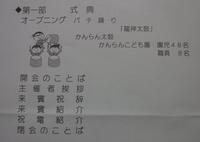 ◆第一部　式典
オープニング　バチ踊り
「龍神太鼓」
かんらん太鼓
かんらんこども園　園児48名
職員　8名
開会のことば
主催者挨拶
来賓祝辞
来賓紹介
祝電紹介
閉会のことば